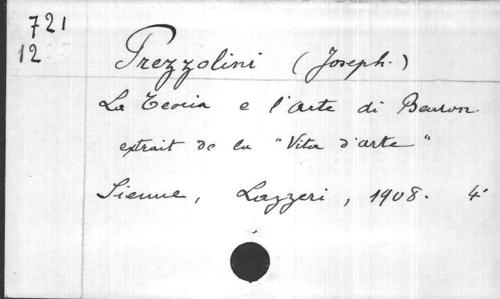 721
12
Prezzolini (Joseph.)
La Teoria e l'arte di Beuron.
extrait de la "Vita d'arte"
Sienne, Lazzeri, 1908. 4°